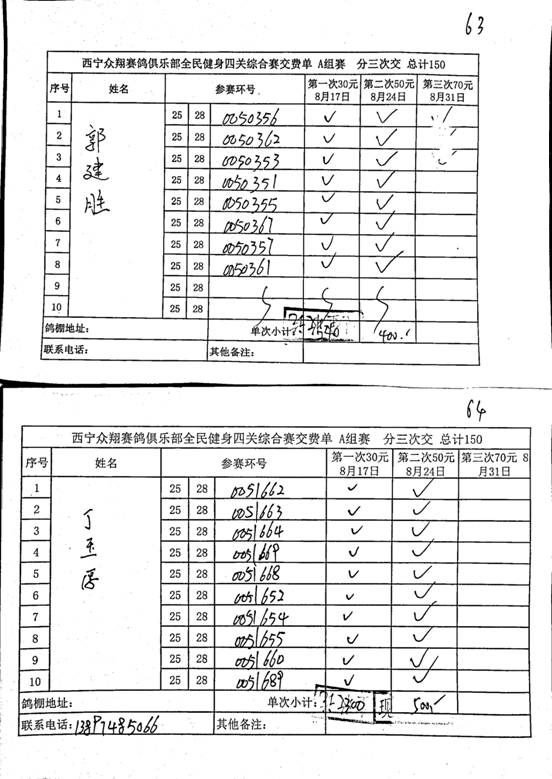 63
西宁众翔赛鸽俱乐部全民健身四关综合赛交费单 A组赛 分三次交 总计150
序号 姓名 参赛环号 第一次30元 8月17日 第二次50元 8月24日 第三次70元 8月31日
郭建胜
1 25 28 0050356 ✓ ✓ ✓
2 25 28 0050362 ✓ ✓
3 25 28 0050353 ✓ ✓ ✓
4 25 28 0050351 ✓ ✓
5 25 28 0050355 ✓ ✓
6 25 28 0050367 ✓ ✓
7 25 28 0050357 ✓ ✓
8 25 28 0050361 ✓ ✓
9 25 28
10 25 28
鸽棚地址: 单次小计: 400
联系电话: 其他备注:
64
西宁众翔赛鸽俱乐部全民健身四关综合赛交费单 A组赛 分三次交 总计150
序号 姓名 参赛环号 第一次30元 8月17日 第二次50元 8月24日 第三次70元 8月31日
丁玉
1 25 28 0051662 ✓ ✓
2 25 28 0051663 ✓ ✓
3 25 28 0051664 ✓ ✓
4 25 28 0051669 ✓ ✓
5 25 28 0051668 ✓ ✓
6 25 28 0051652 ✓ ✓
7 25 28 0051654 ✓ ✓
8 25 28 0051655 ✓ ✓
9 25 28 0051660 ✓ ✓
10 25 28 0051689 ✓ ✓
鸽棚地址: 单次小计: 现 500
联系电话: 13897485066 其他备注: